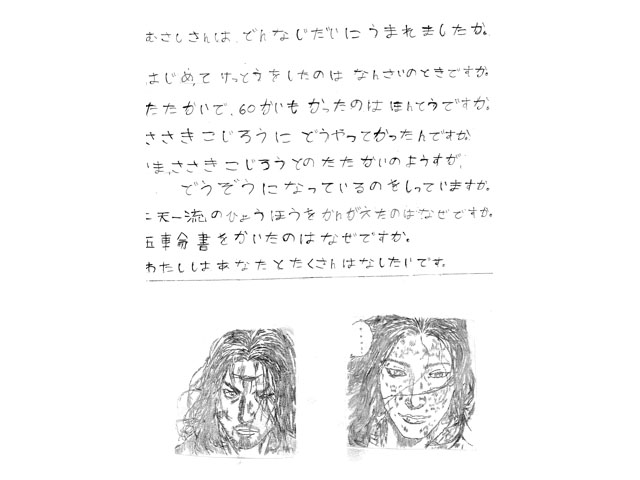 むさしさんは、どんなじだいにうまれましたか。
はじめ、て けっとうをしたのは なんさいのときですか。
たたかいで、60かいも かったのは ほんとうですか。
ささきこじろうに どうやってかったんですか。
いま、ささきこじろうとのたたかいのようすが、
どうぞうになっているのをしっていますか。
二天一流のひょうほうをかんがえたのはなぜですか。
五車命書をかいたのはなぜですか。
わたししはあなたとたくさんはなしたいです。